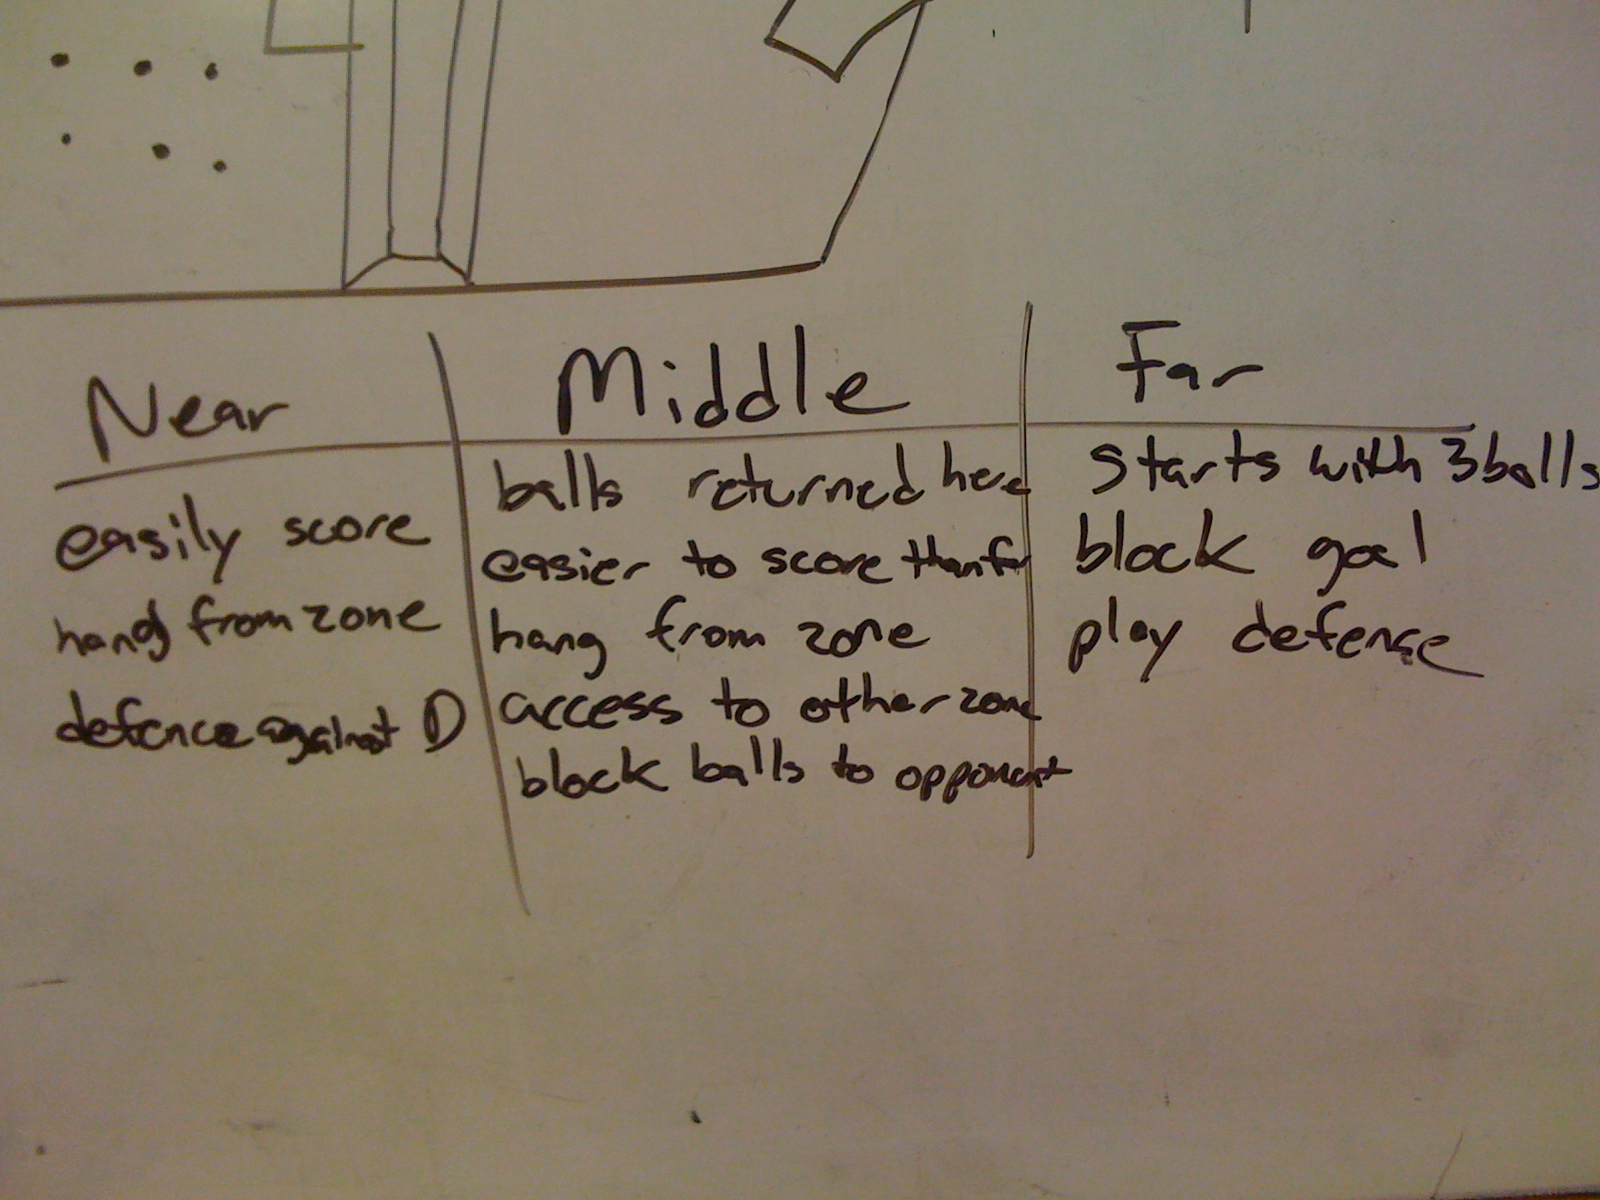 Near
easily score
hang from zone
defence against D
Middle
balls returned here
easier to score than far
hang from zone
access to other zone
block balls to opponent
Far
starts with 3 balls
block goal
play defense